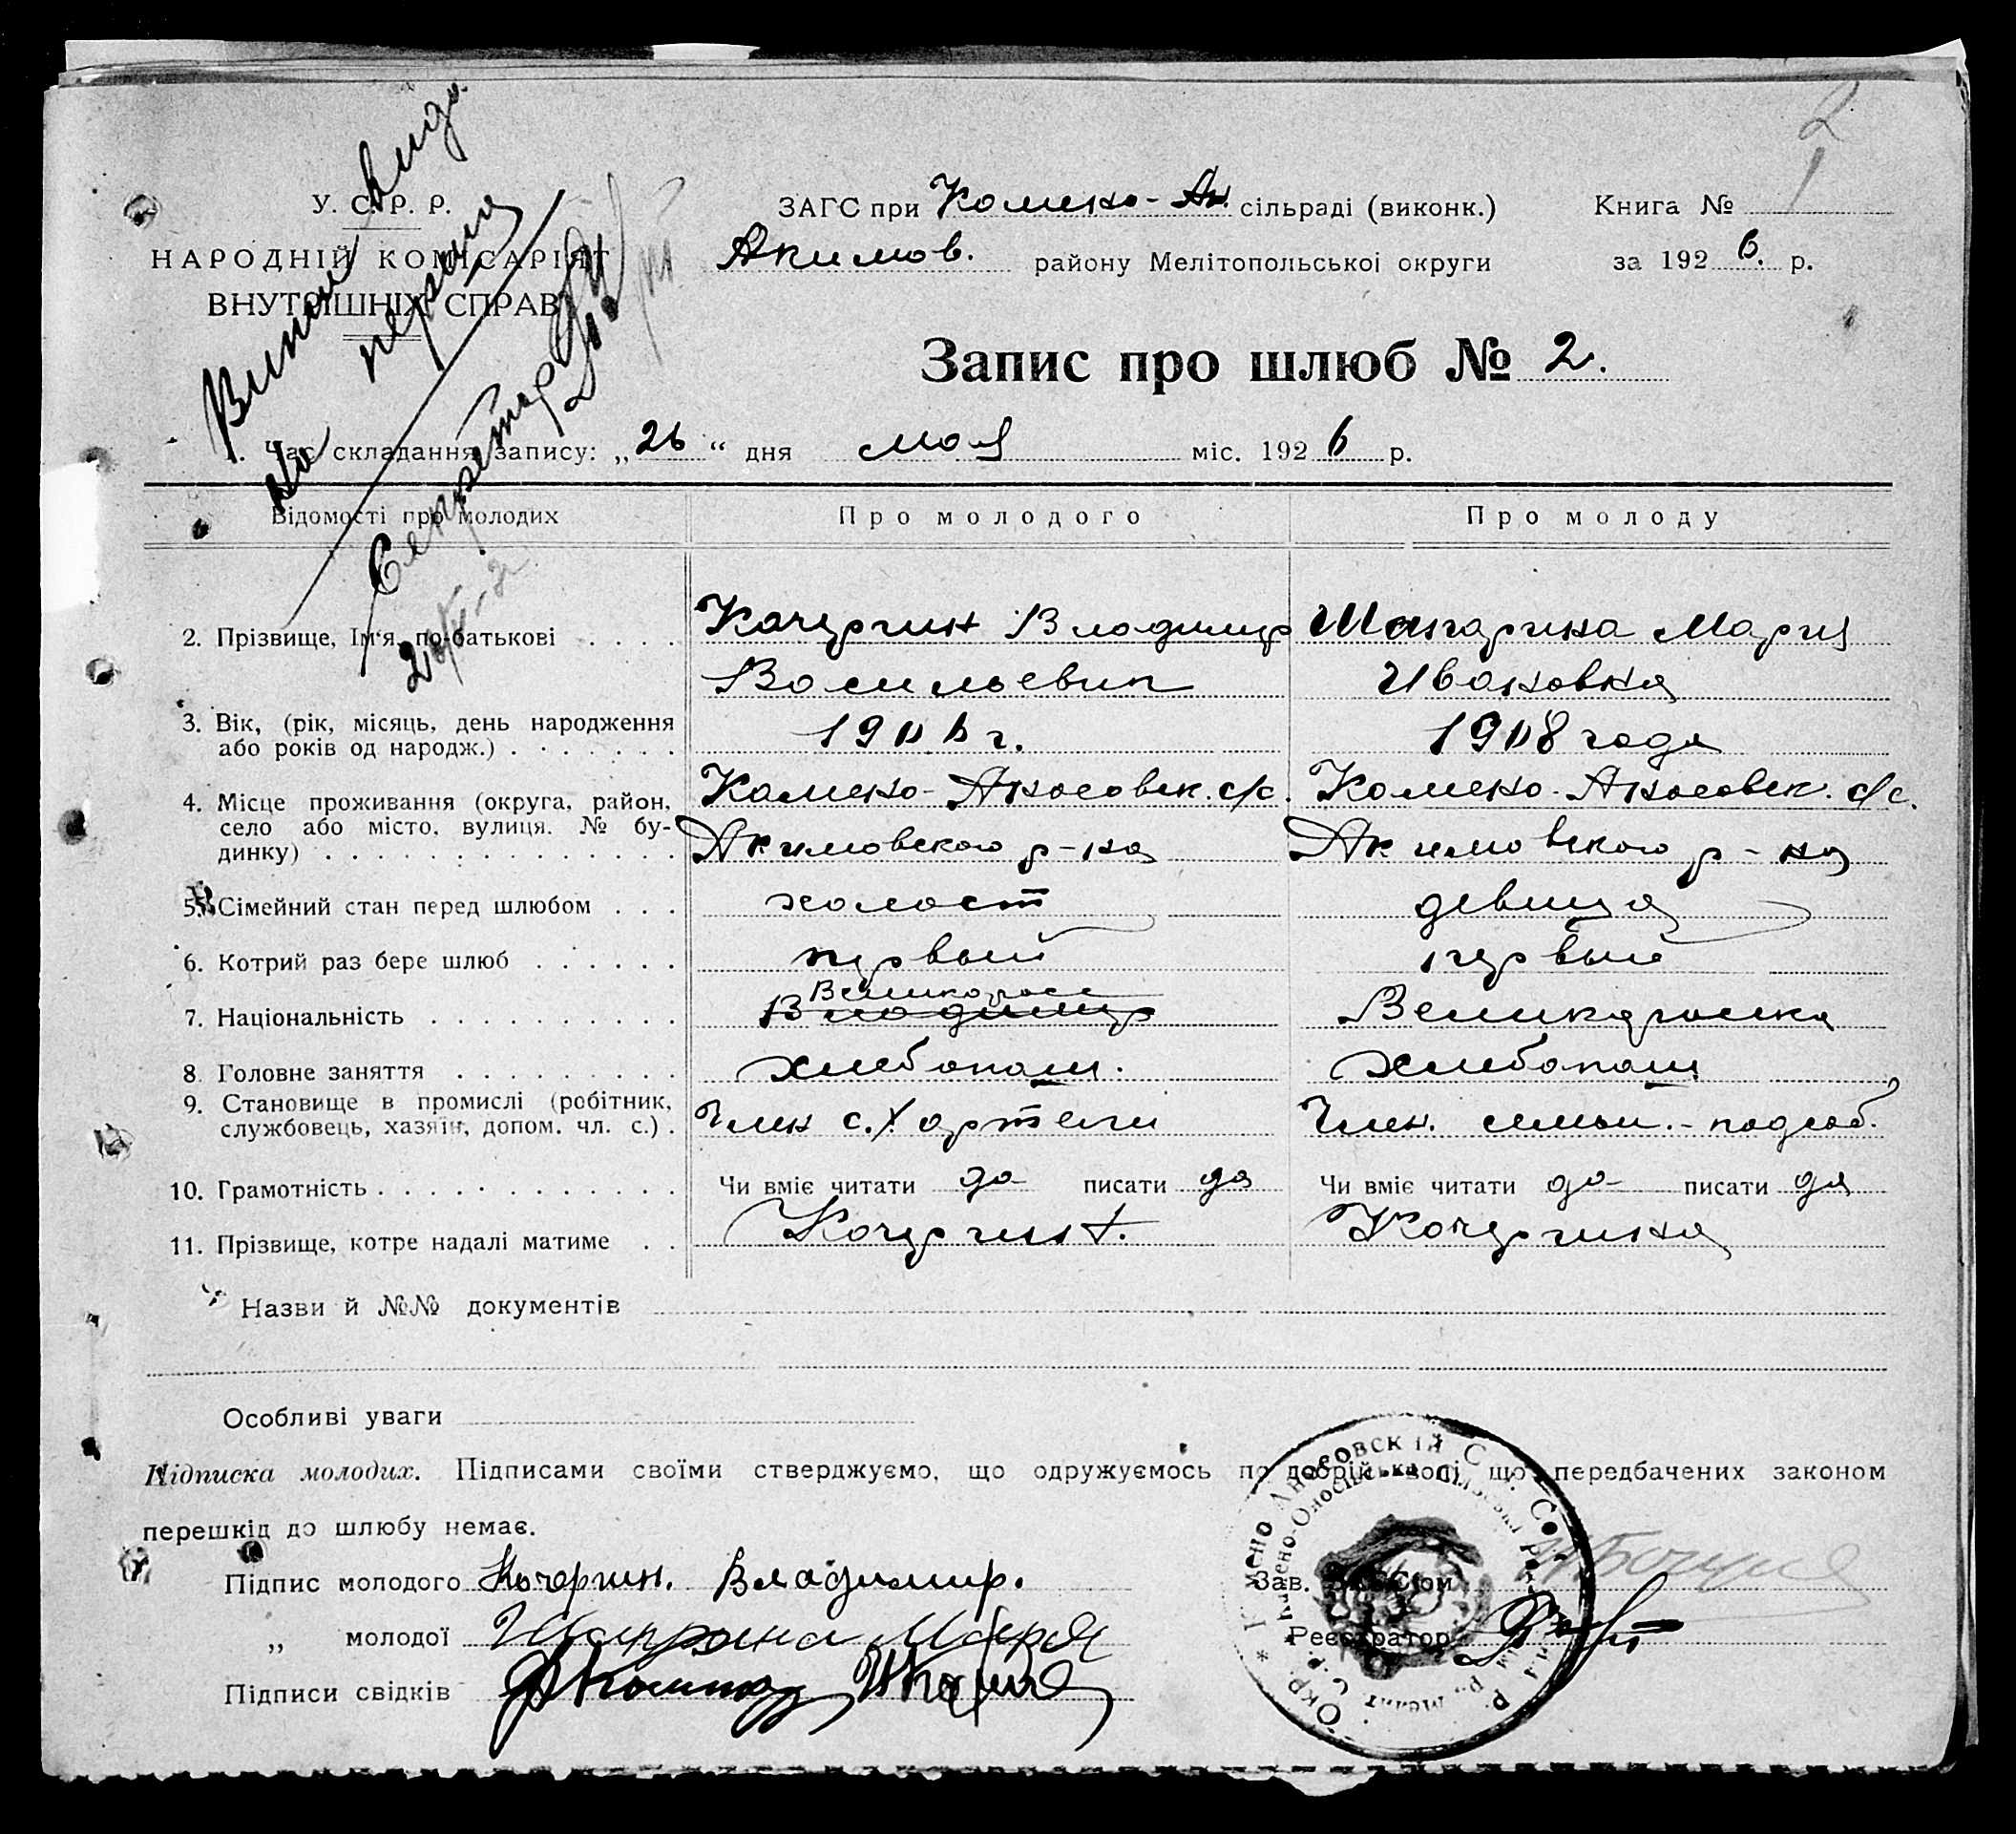 2
1
У. С. Р. Р.
НАРОДНІЙ КОМІСАРІЯТ
ВНУТРІШНІХ СПРАВ
ЗАГС при Камено-Ан. сільраді (виконк.)
Книга №
Акимов. району Мелітопольськоі округи
за 1926. р.
Запис про шлюб № 2.
1. Час складання запису: „26“ дня мая міс. 1926 р.
Секретар
Відомості про молодих
Про молодого
Про молоду
2. Прізвище, Ім'я, по-батькові . . . . Кочергин Владимир
Васильевич
Мария
Ивановна
3. Вік, (рік, місяць, день народження
або років од народж.) . . . . . . . 1906 г.
1908 года
4. Місце проживання (округа, район,
село або місто, вулиця. № бу-
динку) . . . . . . . . . . . . . .
Камено-Аносовск. с/с.
Акимовского р-на
Камено-Аносовск. с/с.
Акимовского р-на
5. Сімейний стан перед шлюбом . . . холост
девица
6. Котрий раз бере шлюб . . . . . . первый
первый
7. Національність . . . . . . . . . . . Великоросс
Владимир
Великоросска
8. Головне заняття . . . . . . . . . хлебопаш.
хлебопаш
9. Становище в промислі (робітник,
службовець, хазяїн, допом. чл. с.) . Член с.х артели
Член. семьи.-подсоб.
10. Грамотність . . . . . . . . . . . . . Чи вміє читати да писати да
Чи вміє читати да писати да
11. Прізвище, котре надалі матиме . . Кочергин.
Кочергина
Назви й №№ документів
Особливі уваги
Підписка молодих. Підписами своїми стверджуємо, що одружуємось по добрій волі, що передбачених законом
перешкід до шлюбу немає.
Підпис молодого Кочергин. Владимир.
„ молодої Мария
Підписи свідків
Зав. ЗАГСом
Реєстратор